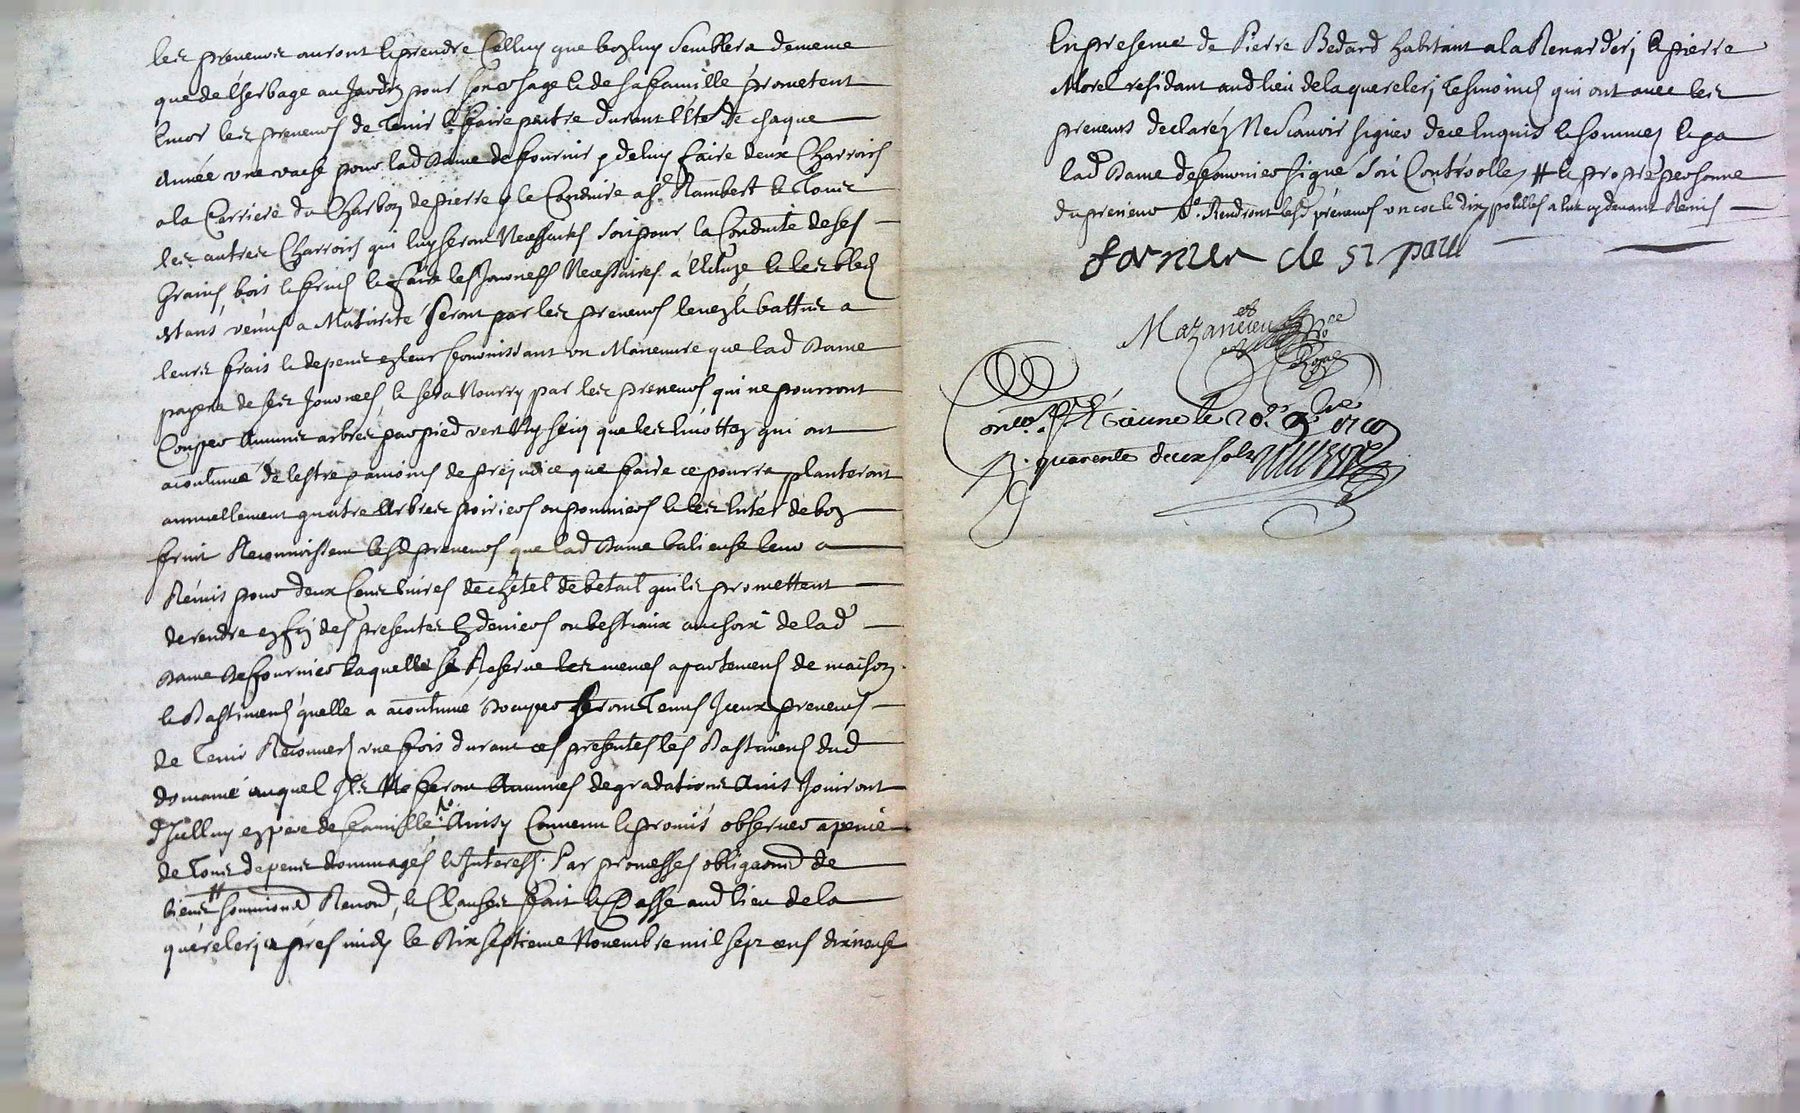 les preneurs auront & prendre Celluy que bon luy Semblera de meme
que de l'herbage au Jardin pour son usage & de sa famille prometent
Encor les preneurs de tenir & faire paitre durant l'Eté de chaque
Année une vache pour lad Dame de fournir & de luy faire deux Charrois
a la Carriere du Charbon de pierre & le Conduire a St Rambert & tous
les autres Charrois qui luy seront Necessaires Soit pour la Conduite de ses
Grains, bois & fruits & faire les Journees Necessaires a & les bleds
Estans venus a Maturité Seront par les preneurs levez & battus a
leurs frais & depens en leur fournissant un Maneuvre que lad Dame
payera de ses Journees & sera Nourry par les preneurs qui ne pourront
Couper Aucuns arbres par pied vert Ny secq que les Emottez qui ont
acoutumé de l'estre a moins de prejudice que faire ce pourra planteront
annuellement quatre Arbres poiriers ou pommiers & les Enter de bon
fruit Reconnoissent lesd preneurs que lad Dame balieuse leur a
Remis pour deux Cens livres de chetel de betail qu'ils promettent
de rendre en fin des presentes En deniers ou bestiaux au choix de lad
Dame De fournier laquelle Se Reserve les memes apartemens de maison
& Bastimens qu'elle a acoutumé Ocuper Seront tenus Iceux preneurs
de tenir Reconverts une fois durant ces presentes les Bastimens dud
domaine auquel Ils Ne feront Aucunes degradations Ains Jouiront
d'Icelluy en pere de famille Ainsy Convenu & promis observer a peine
de tous depens dommages & Interests. Par promesses obligaond de
biens # soumiond, Renond, & Clauses fait & Passé aud lieu de la
querelery apres midy le Dix septieme Novembre mil sept cens dix neuf
En presence de Pierre Bedard habitant a la Renardery & pierre
Morel residant aud lieu de la querelery tesmoins qui ont avec les
preneurs declarés Ne scavoir signer de ce Enquis & sommez & pa
lad Dame de fournier signé Soit Controollé # & propre personne
du preneur Rendront lesd preneurs un coc & dix poulles a lad devant Remis
fornier de st paul
Mazancieu
Royal
Conlé a St Etienne le 20e 9bre 1719
R. quarente deux sols